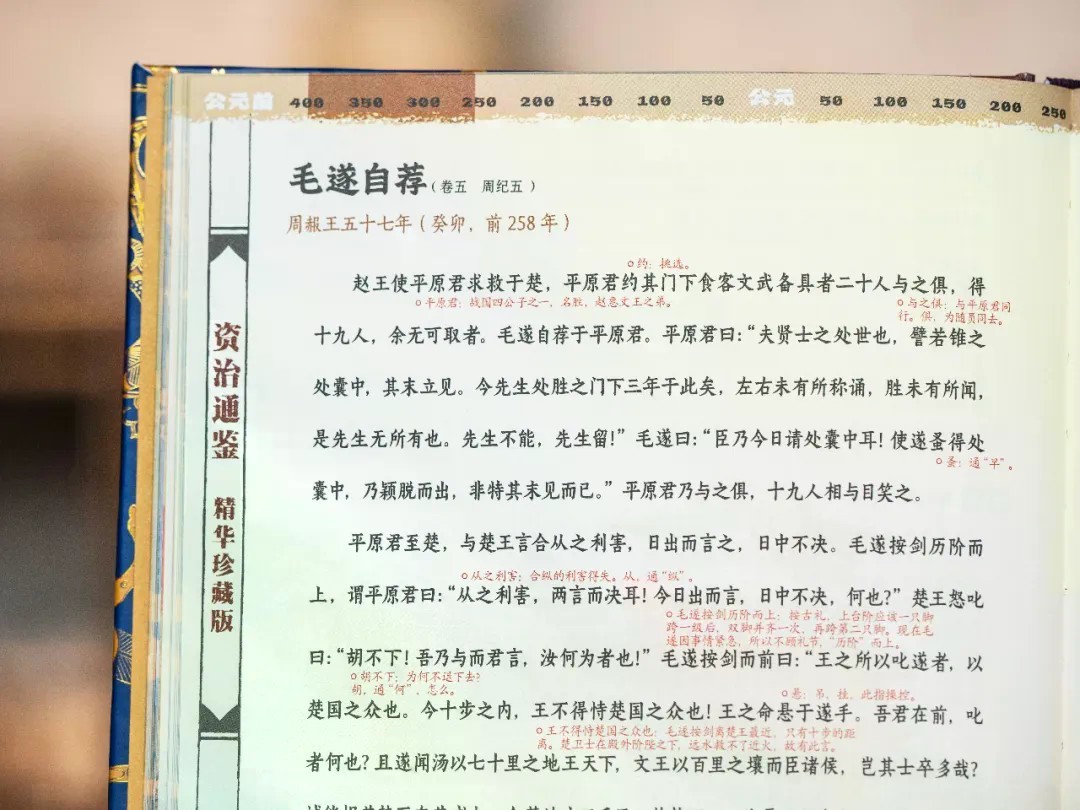 公元前 400 350 300 250 200 150 100 50 公元 50 100 150 200 250
资治通鉴 精华珍藏版
毛遂自荐（卷五 周纪五）
周赧王五十七年（癸卯，前 258 年）
约：挑选。
赵王使平原君求救于楚，平原君约其门下食客文武备具者二十人与之俱，得
平原君：战国四公子之一，名胜，赵惠文王之弟。
与之俱：与平原君同
行。俱，为随员同去。
十九人，余无可取者。毛遂自荐于平原君。平原君曰：“夫贤士之处世也，譬若锥之
处囊中，其末立见。今先生处胜之门下三年于此矣，左右未有所称诵，胜未有所闻，
是先生无所有也。先生不能，先生留！”毛遂曰：“臣乃今日请处囊中耳！使遂蚤得处
蚤：通“早”。
囊中，乃颖脱而出，非特其末见而已。”平原君乃与之俱，十九人相与目笑之。
平原君至楚，与楚王言合从之利害，日出而言之，日中不决。毛遂按剑历阶而
从之利害：合纵的利害得失。从，通“纵”。
上，谓平原君曰：“从之利害，两言而决耳！今日出而言，日中不决，何也？”楚王怒叱
毛遂按剑历阶而上：按古礼，上台阶应该一只脚
跨一级后，双脚并齐一次，再跨第二只脚。现在毛
遂因事情紧急，所以不顾礼节，“历阶”而上。
曰：“胡不下！吾乃与而君言，汝何为者也！”毛遂按剑而前曰：“王之所以叱遂者，以
胡不下：为何不退下去？
胡，通“何”，怎么。
悬：吊，挂，此指操控。
楚国之众也。今十步之内，王不得恃楚国之众也！王之命悬于遂手。吾君在前，叱
王不得恃楚国之众也：毛遂按剑离楚王最近，只有十步的距
离。楚卫士在殿外阶陛之下，远水救不了近火，故有此言。
者何也？且遂闻汤以七十里之地王天下，文王以百里之壤而臣诸侯，岂其士卒多哉？